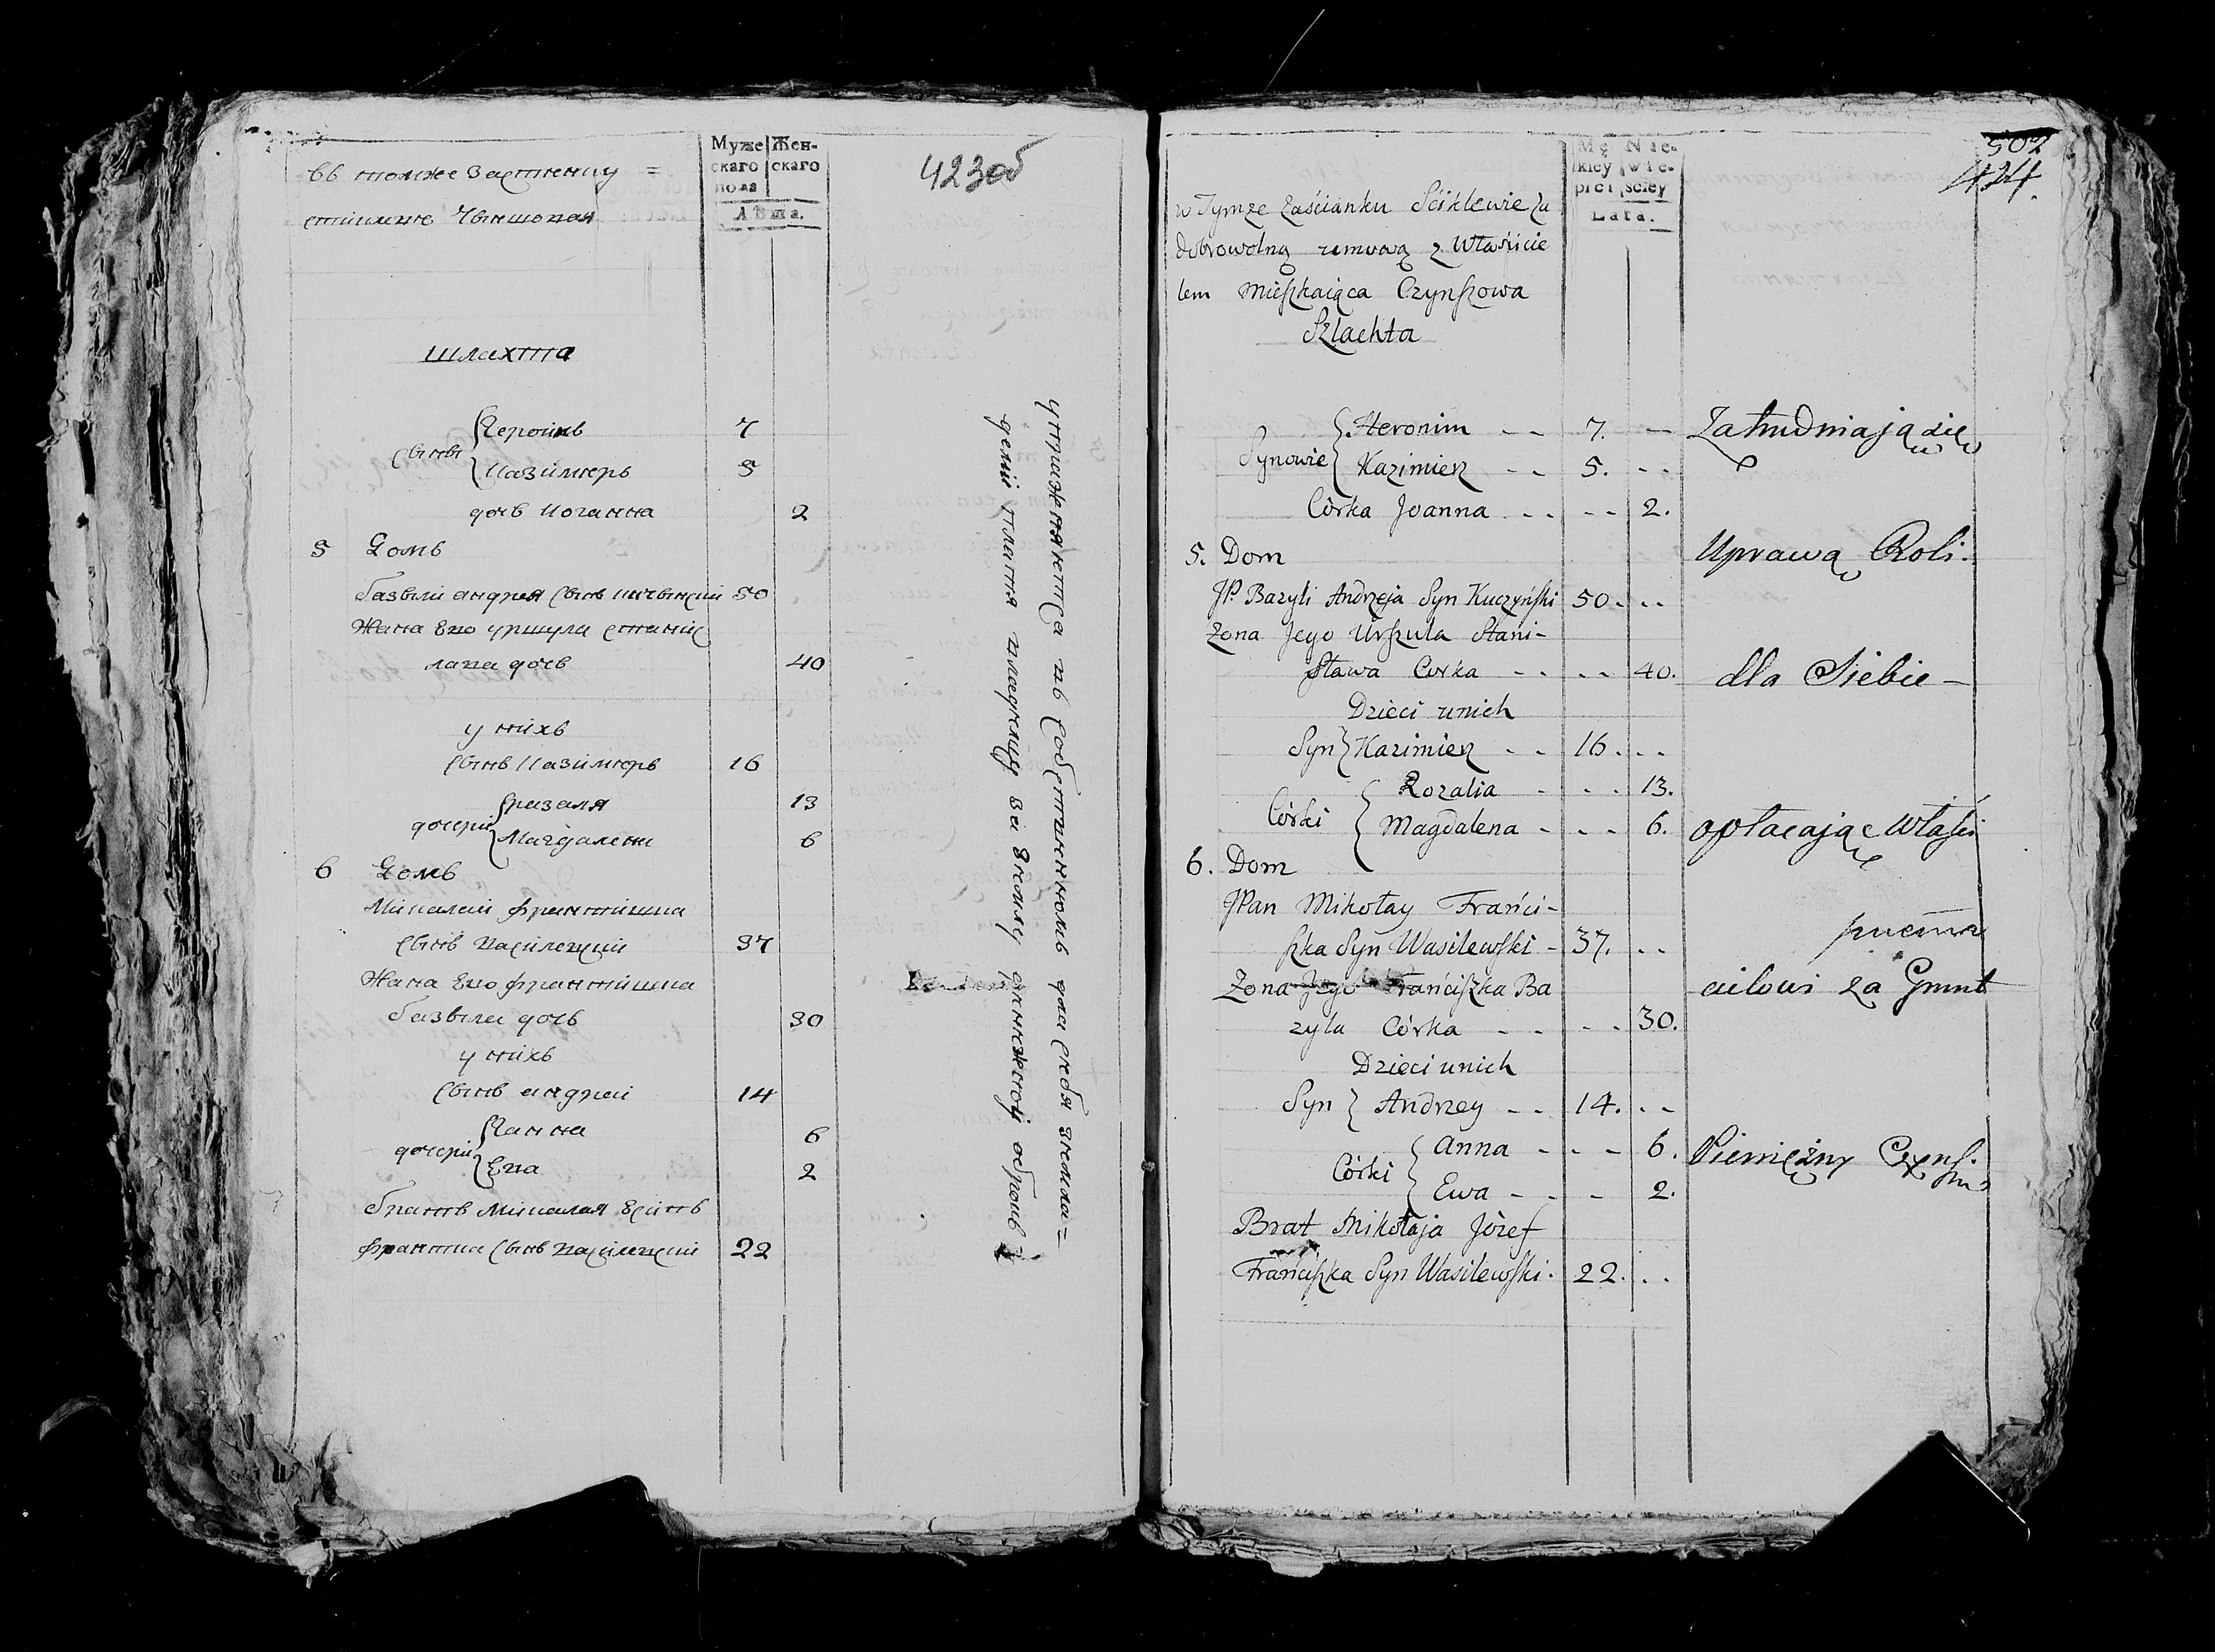 въ томже Застенку =
Чыншовая
шлахта
Муже
скаго
пола
Жен-
скаго
Лѣта.
423об
сыны
Яероимъ 7
Казимеръ 5
дочь Иоганна 2
5 Домъ
базыли андрея сынъ кучынски 50
Жана Его уршула станис
лава дочь 40
у нихъ
сынъ Казимеръ 16
дочери
разаля 13
Магдалена 6
6 Домъ
Миколай францишка
сынъ василевски 37
Жана Его францишка
базыла дочь 30
у нихъ
сынъ андрей 14
дочери
Ганна 6
Ева 2
братъ Миколая
франтишка сынъ василевски 22
упражняютса въ собственномъ для себя землѣ=
делии платя владельцу за землю денежной оброкъ
502
424.
w Tymze Zaścianku Sciklewie za
dobrowolną umową z Właścicie
lem Mieszkaiąca Czynszowa
Szlachta
Mę
kiey
płci
Nie-
wie-
sciey
Lata.
Synowie
Heronim - - 7. -
Kazimierz - - 5. - -
Córka Joanna - - - - 2.
5. Dom
JP. Bazyli Andrzeja Syn Kuczyński 50. - -
Zona Jego Urszula Stani-
sława Corka - - - - 40.
Dzieci unich
Syn Kazimierz - - 16. - -
Córki
Rozalia - - - 13.
Magdalena - - - 6.
6. Dom
JPan Mikołay Franci-
szka Syn Wasilewski - 37. - -
Zona Jego Franciszka Ba
zyla Córka - - - - 30.
Dzieci unich
Syn Andrzey - - 14. - -
Córki
Anna - - - 6.
Ewa - - - 2.
Brat Mikołaja Józef
Franciszka Syn Wasilewski. 22. - -
Zatrudniają się
Uprawą Roli.
dla Siebie -
opłacając Właści
cielowi za Grunt
Pieniężny Czynsz